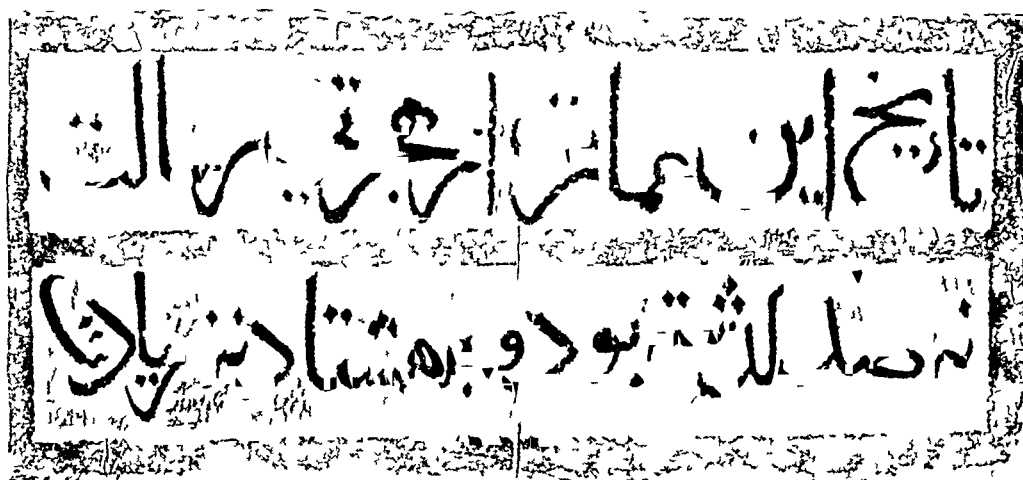 تاریخ این عمارت از هجرت رسالت
نهصد گذشته بود و هشتاد نه زیادت